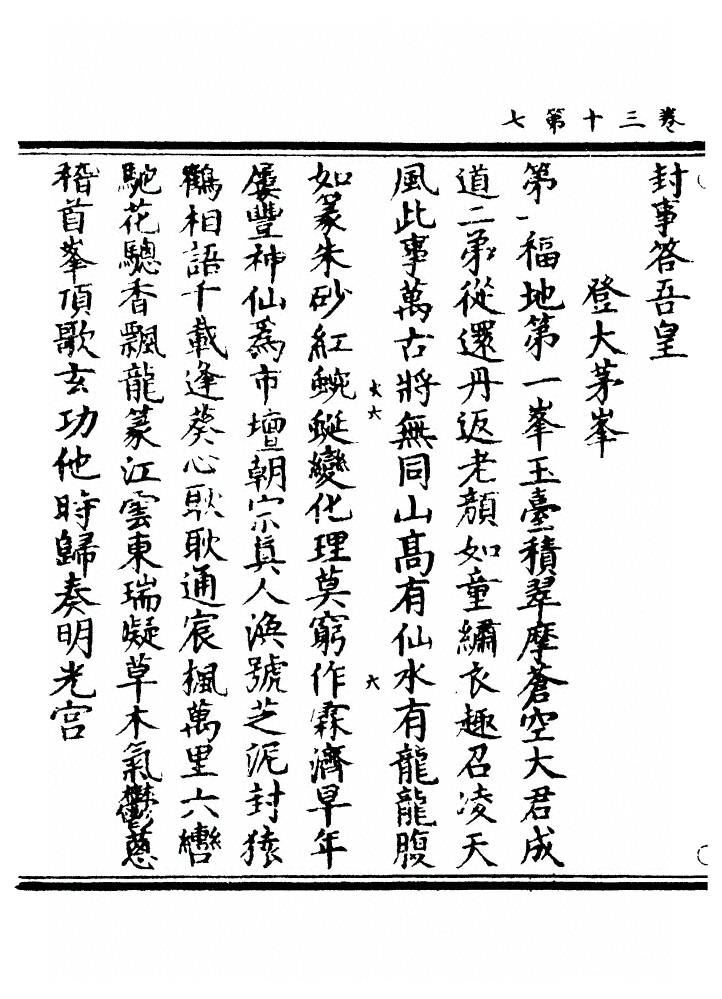 卷三十第七
封事答吾皇
登大茅峯
第一福地第一峯玉臺積翠摩蒼空大君成
道二弟從還丹返老顔如童繡衣趣召凌天
風此事萬古將無同山髙有仙水有龍龍腹
大六
六
如篆朱砂紅蜿蜒變化理莫窮作霖濟旱年
屢豐神仙為市壇朝宗真人渙號芝泥封猿
鶴相語千載逢葵心耿耿通宸楓萬里六轡
馳花驄香飄龍篆江雲東瑞凝草木氣鬱葱
稽首峯頂歌玄功他時歸奏明光宫